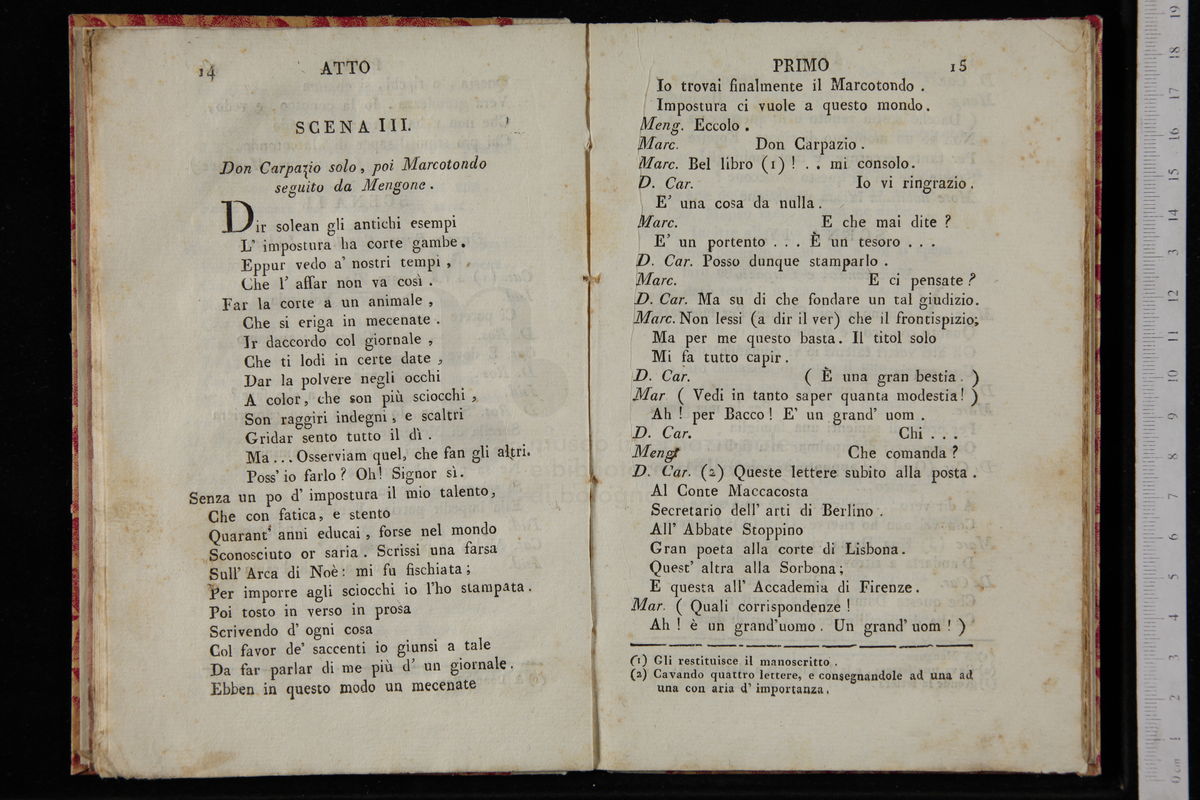 14 ATTO
SCENA III.
Don Carpazio solo, poi Marcotondo
seguito da Mengone.
Dir solean gli antichi esempi
L' impostura ha corte gambe.
Eppur vedo a' nostri tempi,
Che l' affar non va così.
Far la corte a un animale,
Che si eriga in mecenate.
Ir daccordo col giornale,
Che ti lodi in certe date,
Dar la polvere negli occhi
A color, che son più sciocchi,
Son raggiri indegni, e scaltri
Gridar sento tutto il dì.
Ma... Osserviam quel, che fan gli altri.
Poss' io farlo? Oh! Signor sì.
Senza un po d' impostura il mio talento,
Che con fatica, e stento
Quarant' anni educai, forse nel mondo
Sconosciuto or saria. Scrissi una farsa
Sull' Arca di Noè: mi fu fischiata;
Per imporre agli sciocchi io l'ho stampata.
Poi tosto in verso in prosa
Scrivendo d' ogni cosa
Col favor de' saccenti io giunsi a tale
Da far parlar di me più d' un giornale.
Ebben in questo modo un mecenate
PRIMO 15
Io trovai finalmente il Marcotondo.
Impostura ci vuole a questo mondo.
Meng. Eccolo.
Marc. Don Carpazio.
Marc. Bel libro (1)! . . mi consolo.
D. Car. Io vi ringrazio.
E' una cosa da nulla.
Marc. E che mai dite?
E' un portento . . . È un tesoro . . .
D. Car. Posso dunque stamparlo.
Marc. E ci pensate?
D. Car. Ma su di che fondare un tal giudizio.
Marc. Non lessi (a dir il ver) che il frontispizio;
Ma per me questo basta. Il titol solo
Mi fa tutto capir.
D. Car. ( È una gran bestia. )
Mar ( Vedi in tanto saper quanta modestia! )
Ah! per Bacco! E' un grand' uom.
D. Car. Chi . . .
Meng. Che comanda?
D. Car. (2) Queste lettere subito alla posta.
Al Conte Maccacosta
Secretario dell' arti di Berlino.
All' Abbate Stoppino
Gran poeta alla corte di Lisbona.
Quest' altra alla Sorbona;
E questa all' Accademia di Firenze.
Mar. ( Quali corrispondenze!
Ah! è un grand'uomo. Un grand' uom! )
(1) Gli restituisce il manoscritto.
(2) Cavando quattro lettere, e consegnandole ad una ad
una con aria d' importanza.